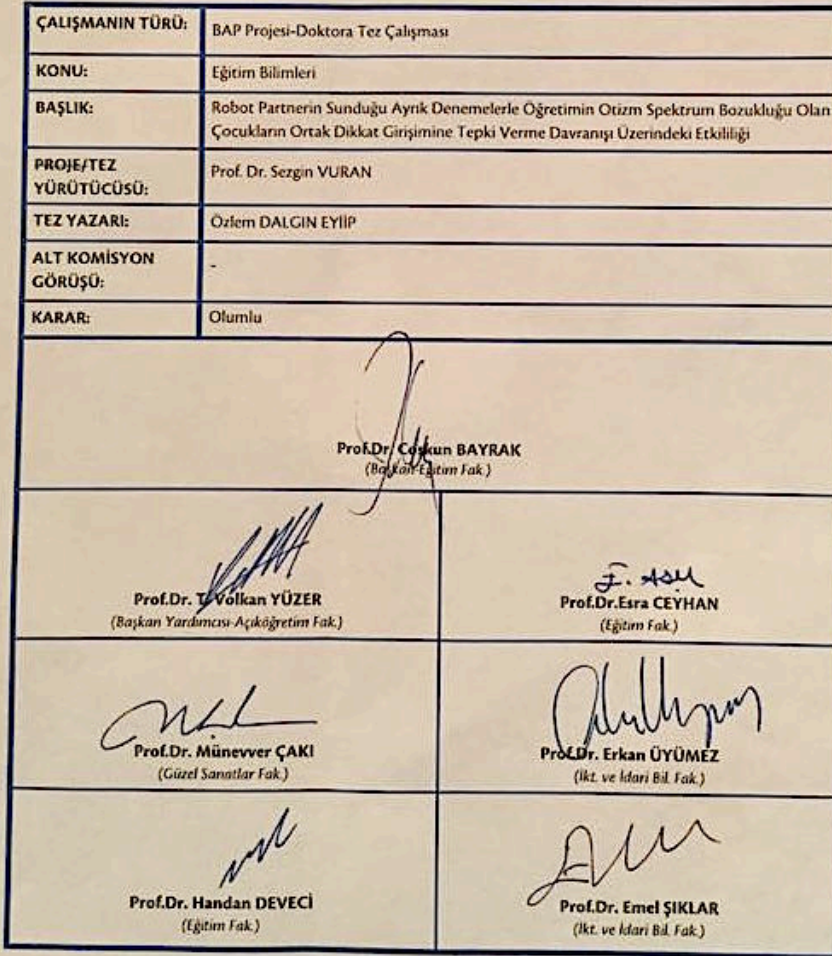 ÇALIŞMANIN TÜRÜ: BAP Projesi-Doktora Tez Çalışması
KONU: Eğitim Bilimleri
BAŞLIK: Robot Partnerin Sunduğu Ayrık Denemelerle Öğretimin Otizm Spektrum Bozukluğu Olan
Çocukların Ortak Dikkat Girişimine Tepki Verme Davranışı Üzerindeki Etkililiği
PROJE/TEZ
YÜRÜTÜCÜSÜ: Prof. Dr. Sezgin VURAN
TEZ YAZARI: Özlem DALGIN EYİİP
ALT KOMİSYON
GÖRÜŞÜ: -
KARAR: Olumlu
Prof.Dr. Coşkun BAYRAK
(Başkan-Eğitim Fak.)
Prof.Dr. T. Volkan YÜZER
(Başkan Yardımcısı-Açıköğretim Fak.)
Prof.Dr.Esra CEYHAN
(Eğitim Fak.)
Prof.Dr. Münevver ÇAKI
(Güzel Sanatlar Fak.)
Prof.Dr. Erkan ÜYÜMEZ
(İkt. ve İdari Bil. Fak.)
Prof.Dr. Handan DEVECİ
(Eğitim Fak.)
Prof.Dr. Emel ŞIKLAR
(İkt. ve İdari Bil. Fak.)